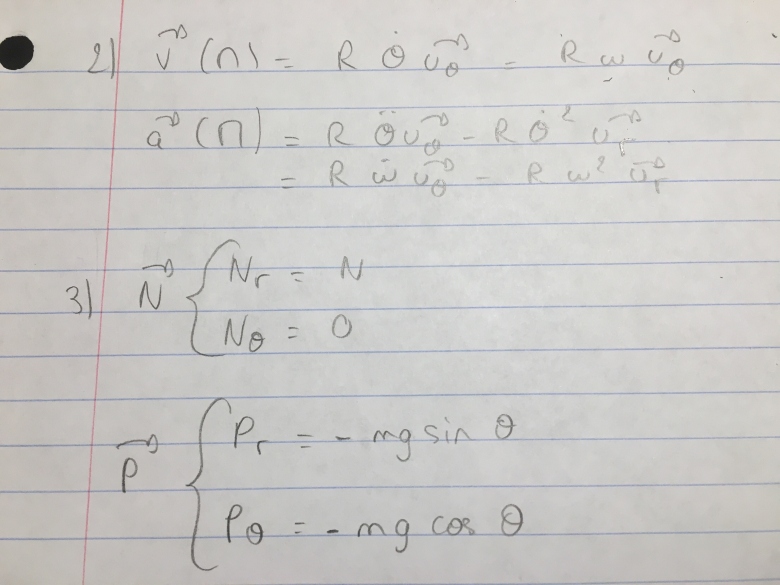 2) v⃗ (M) = R θ̇ u⃗θ = R ω u⃗θ
a⃗ (M) = R θ̈ u⃗θ - R θ̇² u⃗r
= R ω̇ u⃗θ - R ω² u⃗r
3) N⃗ { Nr = N
Nθ = 0
P⃗ { Pr = - mg sin θ
Pθ = - mg cos θ